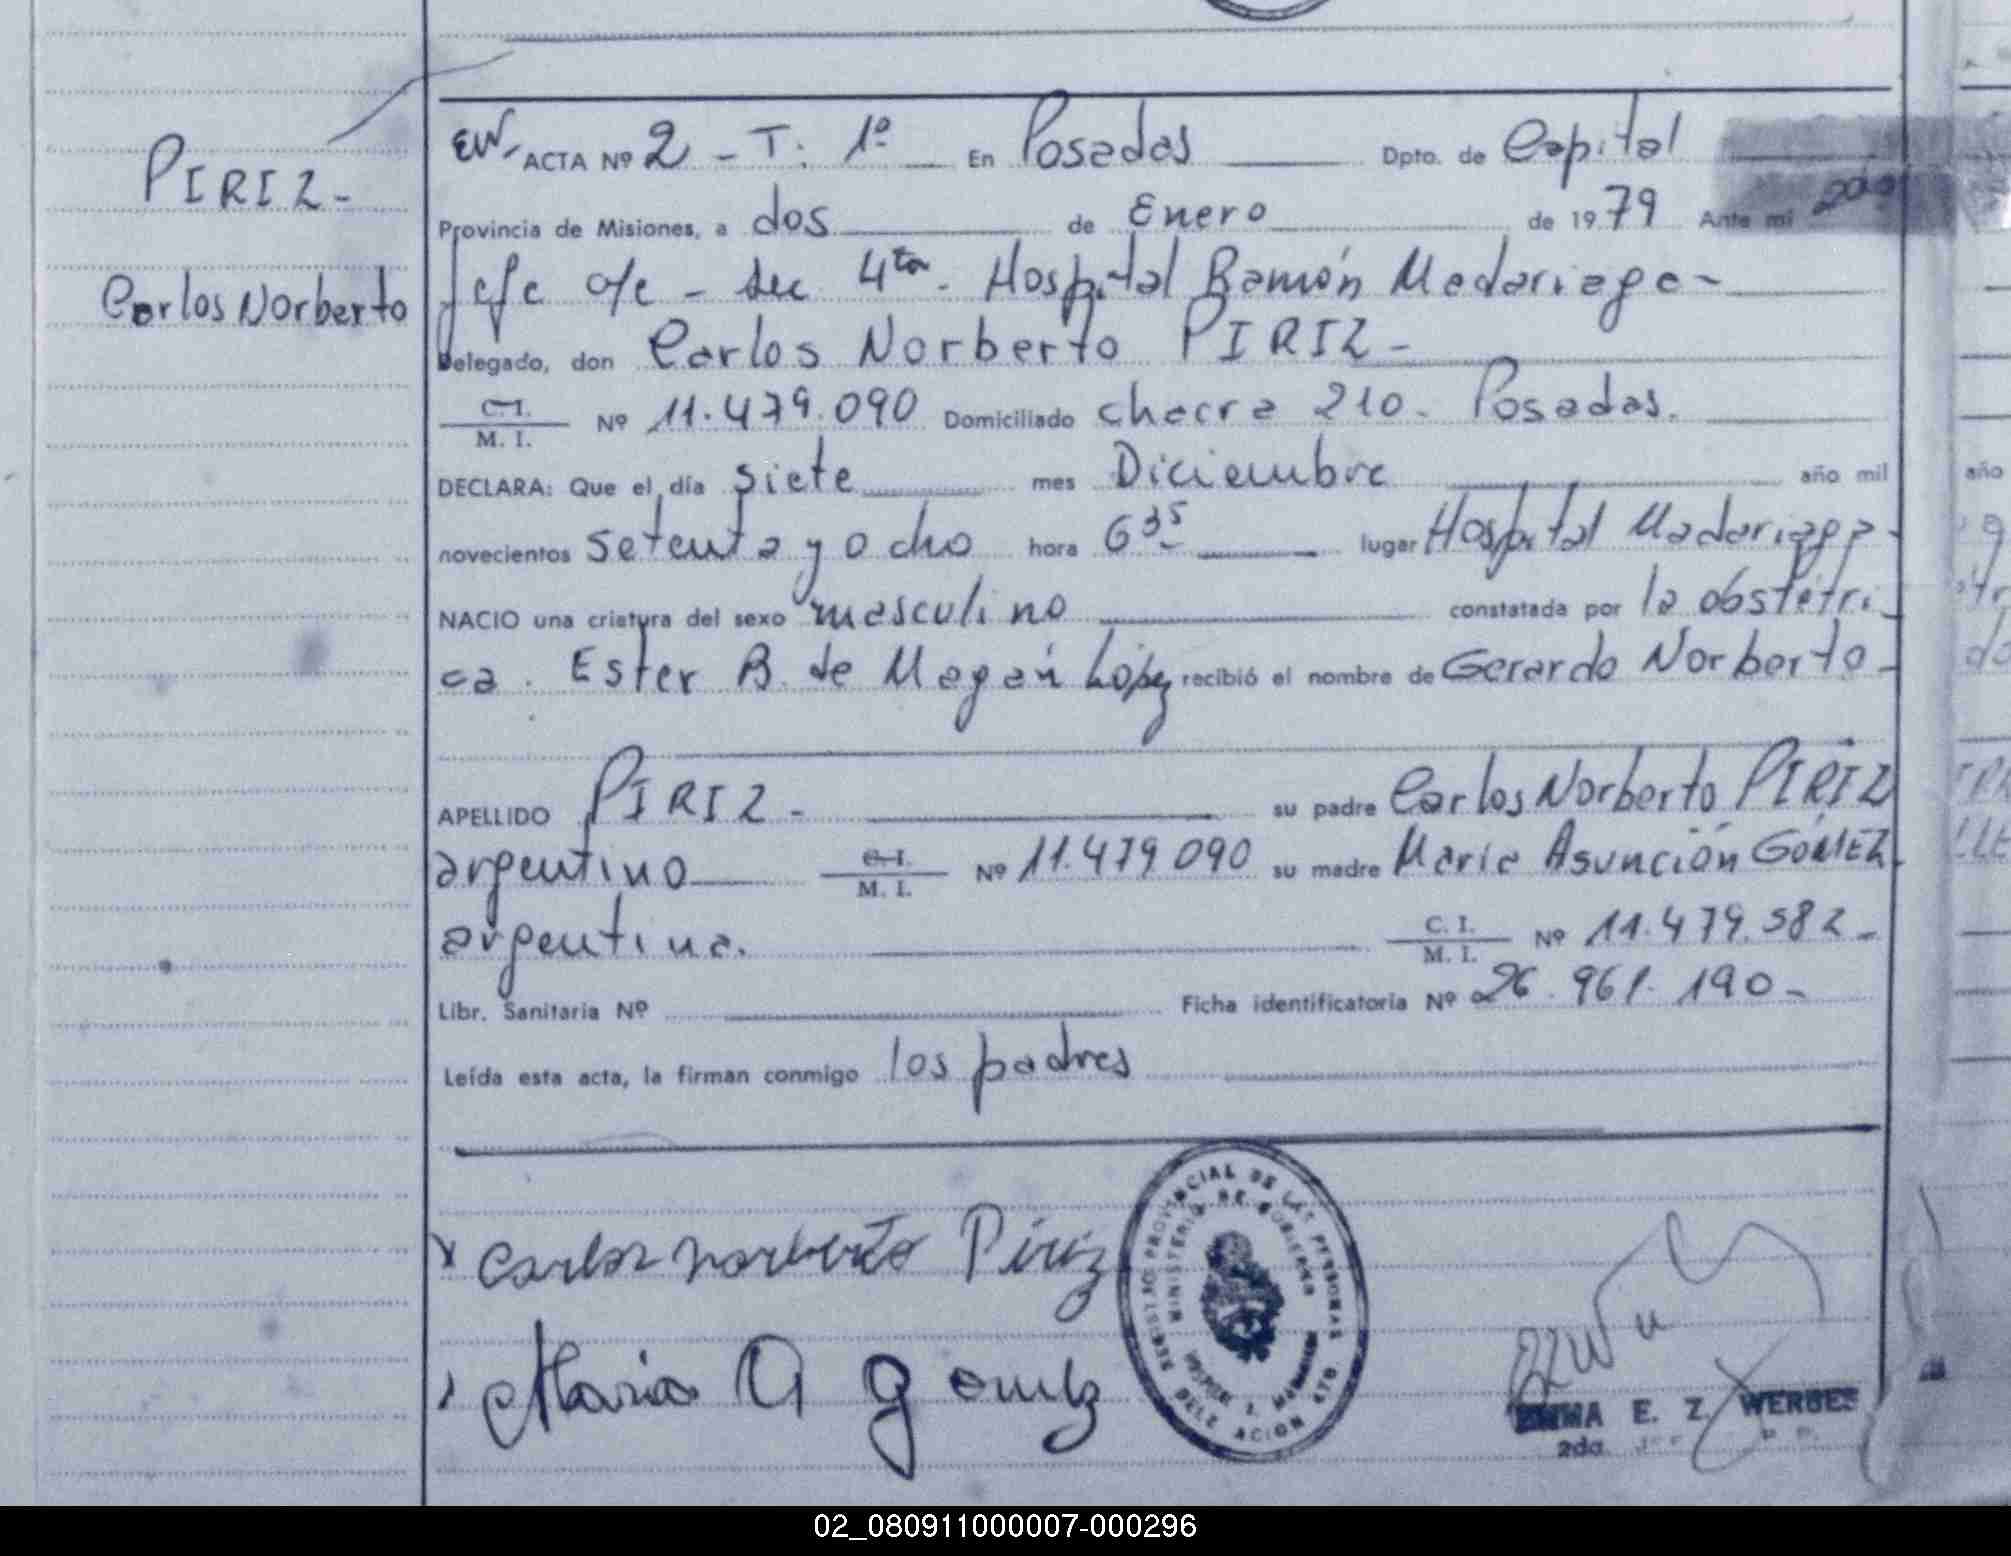 PIRIZ-
Carlos Norberto
EW- ACTA Nº 2 - T. 1º En Posadas Dpto. de Capital
Provincia de Misiones, a dos de Enero de 1979 Ante mi 2do
Jefe o/c - sec 4ta. Hospital Ramón Madariaga-
Delegado, don Carlos Norberto PIRIZ-
C.I.
M. I. Nº 11.479.090 Domiciliado chacra 210. Posadas.
DECLARA: Que el día siete mes Diciembre año mil
novecientos setenta y ocho hora 6 35 lugar Hospital Madariaga-
NACIO una criatura del sexo masculino constatada por la obstétri-
ca. Ester B. de Magán López recibió el nombre de Gerardo Norberto-
APELLIDO PIRIZ - su padre Carlos Norberto PIRIZ
argentino C.I.
M. I. Nº 11.479.090 su madre María Asunción GÓMEZ.
argentina. C. I.
M. I. Nº 11.479.582-
Libr. Sanitaria Nº Ficha identificatoria Nº 26.961.190-
Leída esta acta, la firman conmigo los padres
x Carlos Norberto Piriz
Maria A gomez
REGISTRO PROVINCIAL DE LAS PERSONAS
MINISTERIO DE GOBIERNO
DELEGACION 4TA.
EMMA E. Z. WERBES
2do. JEFE
año
02_080911000007-000296